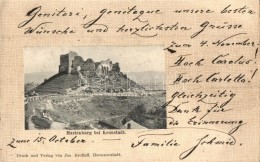 Genitori, genitoque unsere besten
Wünsche und herzlichsten Grüsse
zum 4. November.
Hoch Carolus!
Hoch Carlotta!
Gleichzeitig
Dank für
die Erinnerung
zum 15. October.
Familie
Marienburg bei Kronstadt.
Druck und Verlag von Jos. Drotleff, Hermannstadt.